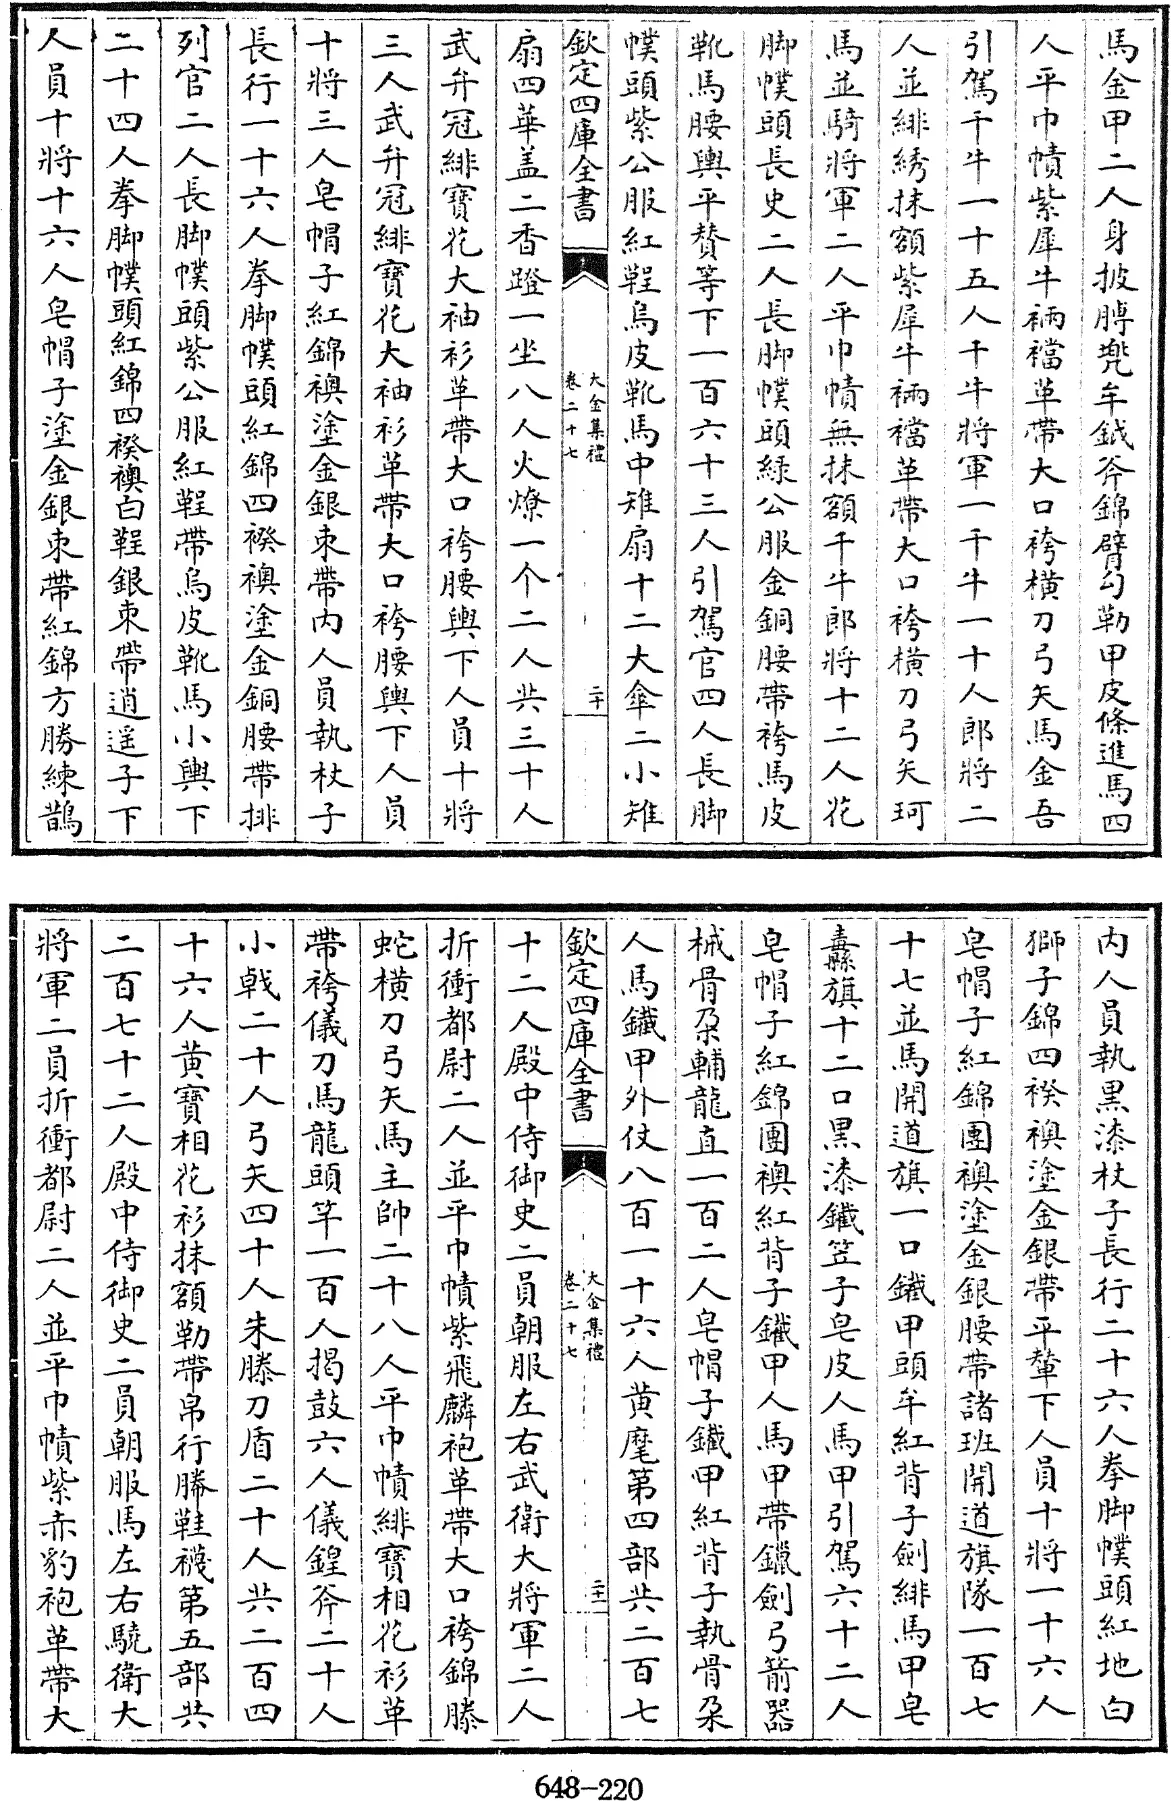 馬金甲二人身披膊兠牟鉞斧錦臂勾勒甲皮條進馬四
人平巾幘紫犀牛裲襠革帶大口袴橫刀弓矢馬金吾
引駕千牛一十五人千牛將軍一千牛一十人郎將二
人並緋綉抹額紫犀牛裲襠革帶大口袴橫刀弓矢珂
馬並騎將軍二人平巾幘無抹額千牛郎將十二人花
脚幞頭長史二人長脚幞頭綠公服金銅腰帶袴馬皮
靴馬腰輿平贊等下一百六十三人引駕官四人長脚
幞頭紫公服紅鞓烏皮靴馬中雉扇十二大傘二小雉
欽定四庫全書
大金集禮
卷二十七
二十
扇四華盖二香蹬一坐八人火燎一个二人共三十人
武弁冠緋寶花大袖衫革帶大口袴腰輿下人員十將
三人武弁冠緋寶花大袖衫革帶大口袴腰輿下人員
十將三人皂帽子紅錦襖塗金銀束帶内人員執杖子
長行一十六人拳脚幞頭紅錦四䙆襖塗金銅腰帶排
列官二人長脚幞頭紫公服紅鞓帶烏皮靴馬小輿下
二十四人拳脚幞頭紅錦四䙆襖白鞓銀束帶逍遥子下
人員十將十六人皂帽子塗金銀束帶紅錦方勝練鵲
内人員執黒漆杖子長行二十六人拳脚幞頭紅地白
獅子錦四䙆襖塗金銀帶平輦下人員十將一十六人
皂帽子紅錦團襖塗金銀腰帶諸班開道旗隊一百七
十七並馬開道旗一口鐵甲頭牟紅背子劍緋馬甲皂
纛旗十二口黒漆鐵笠子皂皮人馬甲引駕六十二人
皂帽子紅錦團襖紅背子鐵甲人馬甲帶鑞劍弓箭器
械骨朶輔龍直一百二人皂帽子鐵甲紅背子執骨朶
人馬鐵甲外仗八百一十六人黄麾第四部共二百七
欽定四庫全書
大金集禮
卷二十七
二十一
十二人殿中侍御史二員朝服左右武衛大將軍二人
折衝都尉二人並平巾幘紫飛麟袍革帶大口袴錦縢
蛇橫刀弓矢馬主帥二十八人平巾幘緋寶相花衫革
帶袴儀刀馬龍頭竿一百人揭鼓六人儀鍠斧二十人
小戟二十人弓矢四十人朱縢刀盾二十人共二百四
十六人黄寶相花衫抹額勒帶帛行縢鞋襪第五部共
二百七十二人殿中侍御史二員朝服馬左右驍衛大
將軍二員折衝都尉二人並平巾幘紫赤豹袍革帶大
648-220